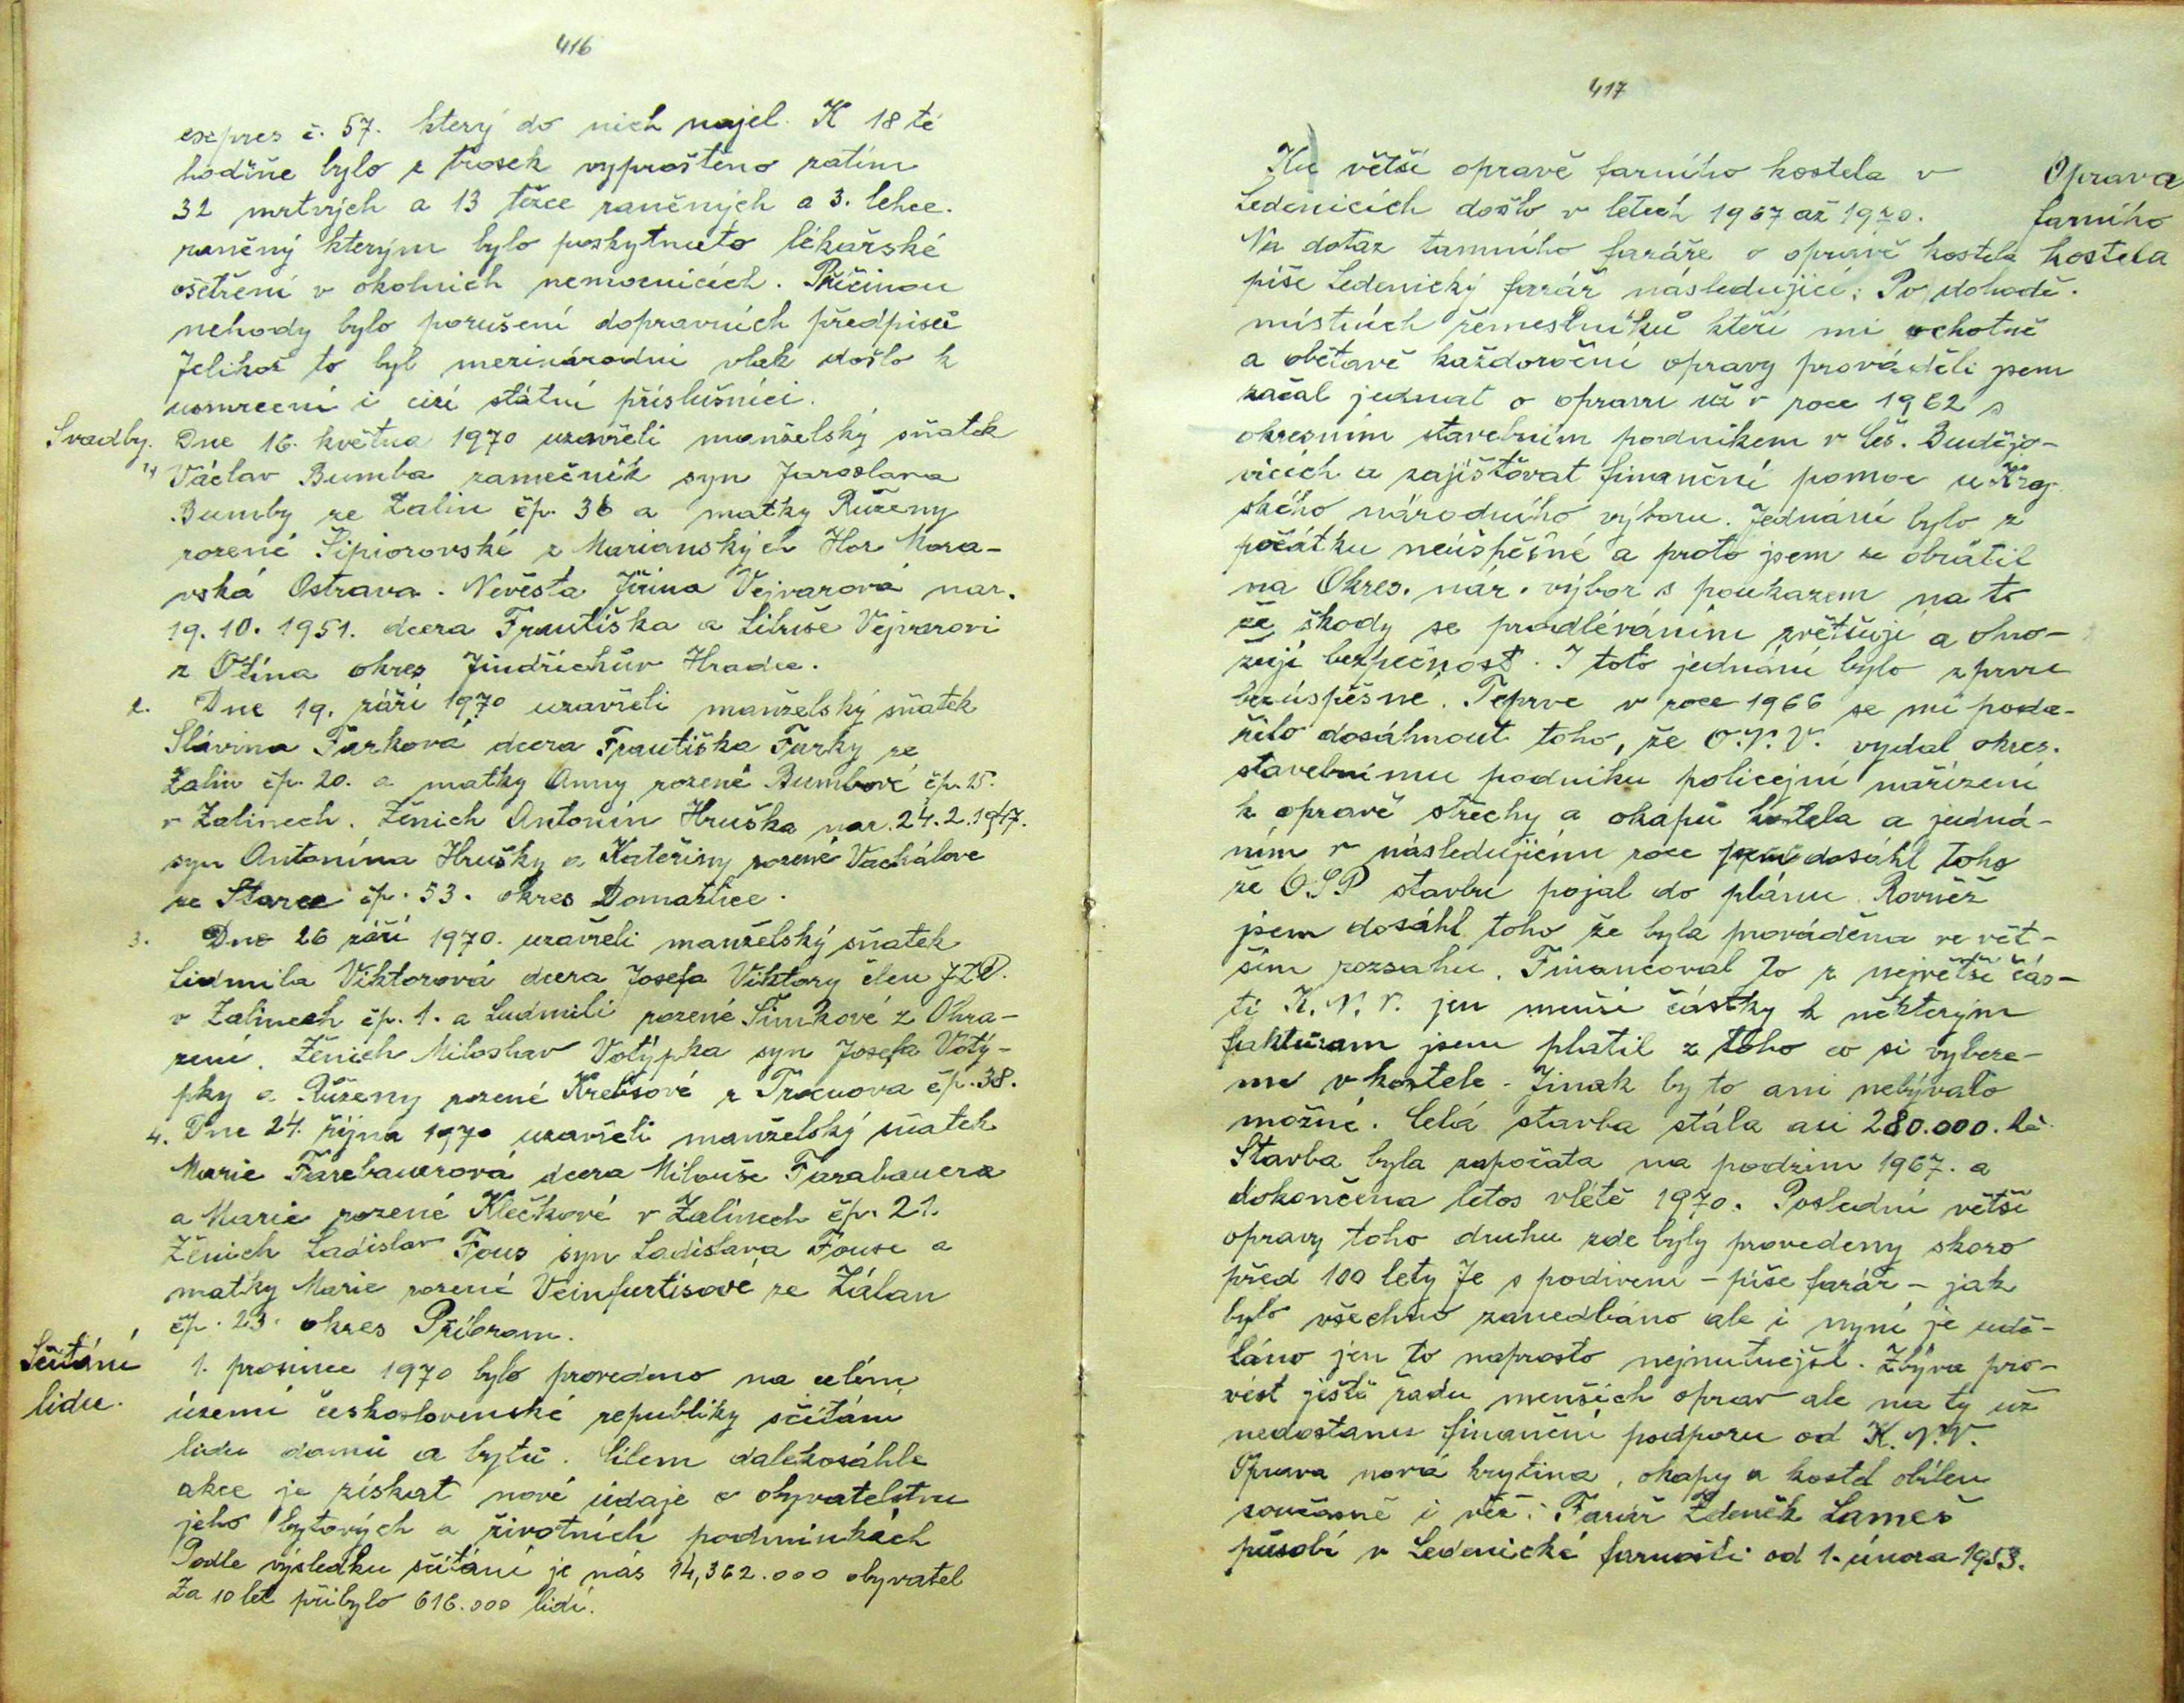 416
expres č. 57. který do nich najel. K 18 té
hodině bylo z trosek vyproštěno zatím
32 mrtvých a 13 těžce raněných a 3. lehce.
raněný kterým bylo poskytnuto lékařské
ošetření v okolních nemocnicích. Příčinou
nehody bylo porušení dopravních předpisů
Jelikož to byl mezinárodní vlak došlo k
usmrcení i cizí státní příslušníci.
Svadby. Dne 16. května 1970 uzavřeli manželský sňatek
1, Václav Bumba zamečník syn Jaroslava
Bumby ze Zalin čp. 36 a matky Růženy
rozené Šipiorovské z Marianských Hor Mora-
vská Ostrava. Nevěsta Jiřina Vejvarová nar.
19. 10. 1951. dcera Františka a Libuše Vejvarovi
z Otína okres Jindřichův Hradec.
2. Dne 19. září 1970 uzavřeli manželský sňatek
Slávina Farková dcera Františka Farky ze
Zalin čp. 20. a matky Anny rozené Bumbové čp. 15.
v Zalinech. Ženich Antonín Hruška nar. 24. 2. 1947.
syn Antonína Hrušky a Kateřiny rozené Vachálové
ze Starce čp. 53. okres Domažlice.
3. Dne 26 září 1970. uzavřeli manželský sňatek
Lidmila Viktorová dcera Josefa Viktory člen JZD.
v Zalinech čp. 1. a Ludmili rozené Šimkové z Ohra-
zení. Ženich Miloslav Votýpka syn Josefa Votý-
pky a Růženy rozené Krebsové z Trocnova čp. 38.
4. Dne 24. října 1970 uzavřeli manželský sňatek
Marie Farebauerová dcera Milouše Farabauera
a Marie rozené Klečkové v Zalinech čp. 21.
Ženich Ladislav Fous syn Ladislava Fouse a
matky Marie rozené Veinfurtisové ze Zálan
čp. 23. okres Příbram.
Sčítání 1. prosince 1970 bylo provedeno na celém
lidu. území československé republiky sčítání
lidu domů a bytů. Cílem dalekosáhle
akce je získat nové údaje o obyvatelstvu
jeho bytových a životních podmínkách
Podle výsledku sčítání je nás 14,362.000 obyvatel
Za 10 let přibylo 616.000 lidí.
417
Ku větší opravě farního kostela v Oprava
Ledenicích došlo v letech 1967 až 1970. farního
Na dotaz tamního faráře o opravě kostela kostela
píše Ledenický farář následující: Po dohodě
místních řemeslníků kteří mi ochotně
a obětavě každoroční opravy prováděli jsem
začal jednat o opravu už v roce 1962 s
okresním stavebním podnikem v Čes. Budějo-
vicích a zajišťovat finanční pomoc u Kraj-
ského národního výboru. Jednání bylo z
počátku neúspěšné a proto jsem se obrátil
na Okres. nár. výbor s poukazem na to
že škody se prodléváním zvětšují a ohro-
žují bezpečnost. I toto jednání bylo zprvu
bezúspěšné. Teprve v roce 1966 se mi poda-
řilo dosáhnout toho, že O.N.V. vydal okres.
stavebnímu podniku policejní nařízení
k opravě střechy a okapů kostela a jedná-
ním v následujícím roce jsem dosáhl toho
že OSP stavbu pojal do plánu. Rovněž
jsem dosáhl toho že byla prováděna ve vět-
ším rozsahu. Financoval to z největší čás-
ti K.N.V. jen menší částky k některým
fakturam jsem platil z toho co si vybere-
me v kostele. Jinak by to ani nebývalo
možné. Celá stavba stála asi 280.000. Kč.
Stavba byla započata na podzim 1967. a
dokončena letos v létě 1970. Poslední větší
opravy toho druhu zde byly provedeny skoro
před 100 lety Je s podivem - píše farář - jak
bylo všechno zanedbáno ale i nyní je udě-
láno jen to naprosto nejnutnejší. Zbýva pro-
vést ještě řadu menších oprav ale na ty už
nedostanu finanční podporu od K.N.V.
Oprava nová krytina, okapy a kostel obílen
současně i věž. Farář Zdeněk Lameš
působí v Ledenické farnosti od 1. února 1953.